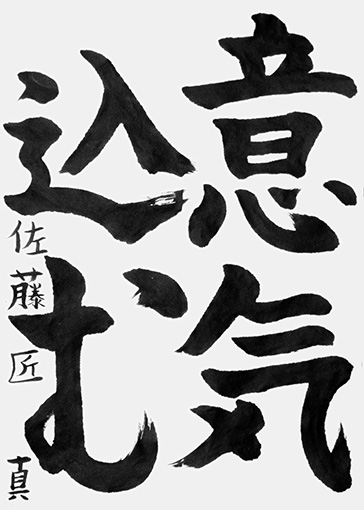 意気
込む
佐藤匠真